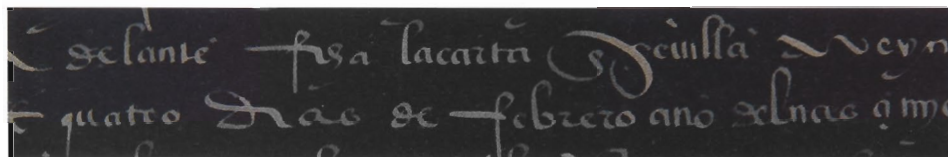 delante fha la carta en Seuilla veyn
te quatro dias de febrero año del nas